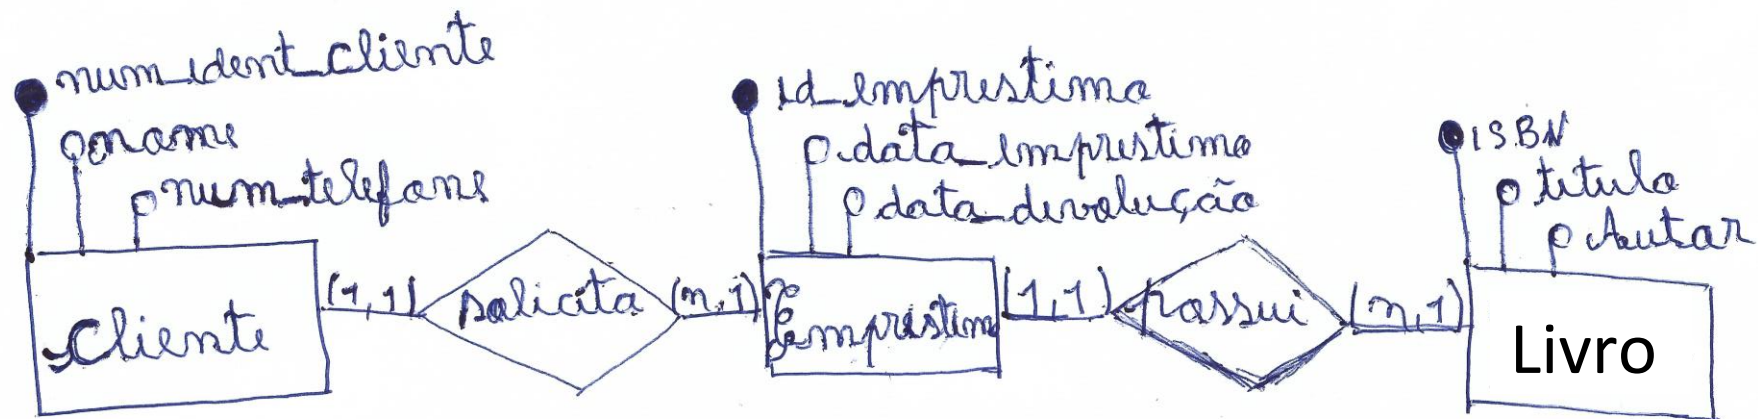 num_ident_cliente
nome
num_telefone
Cliente
(1,1)
solicita
(n,1)
id_emprestimo
data_emprestimo
data_devolução
Empréstim
(1,1)
possui
(n,1)
ISBN
titulo
Autor
Livro